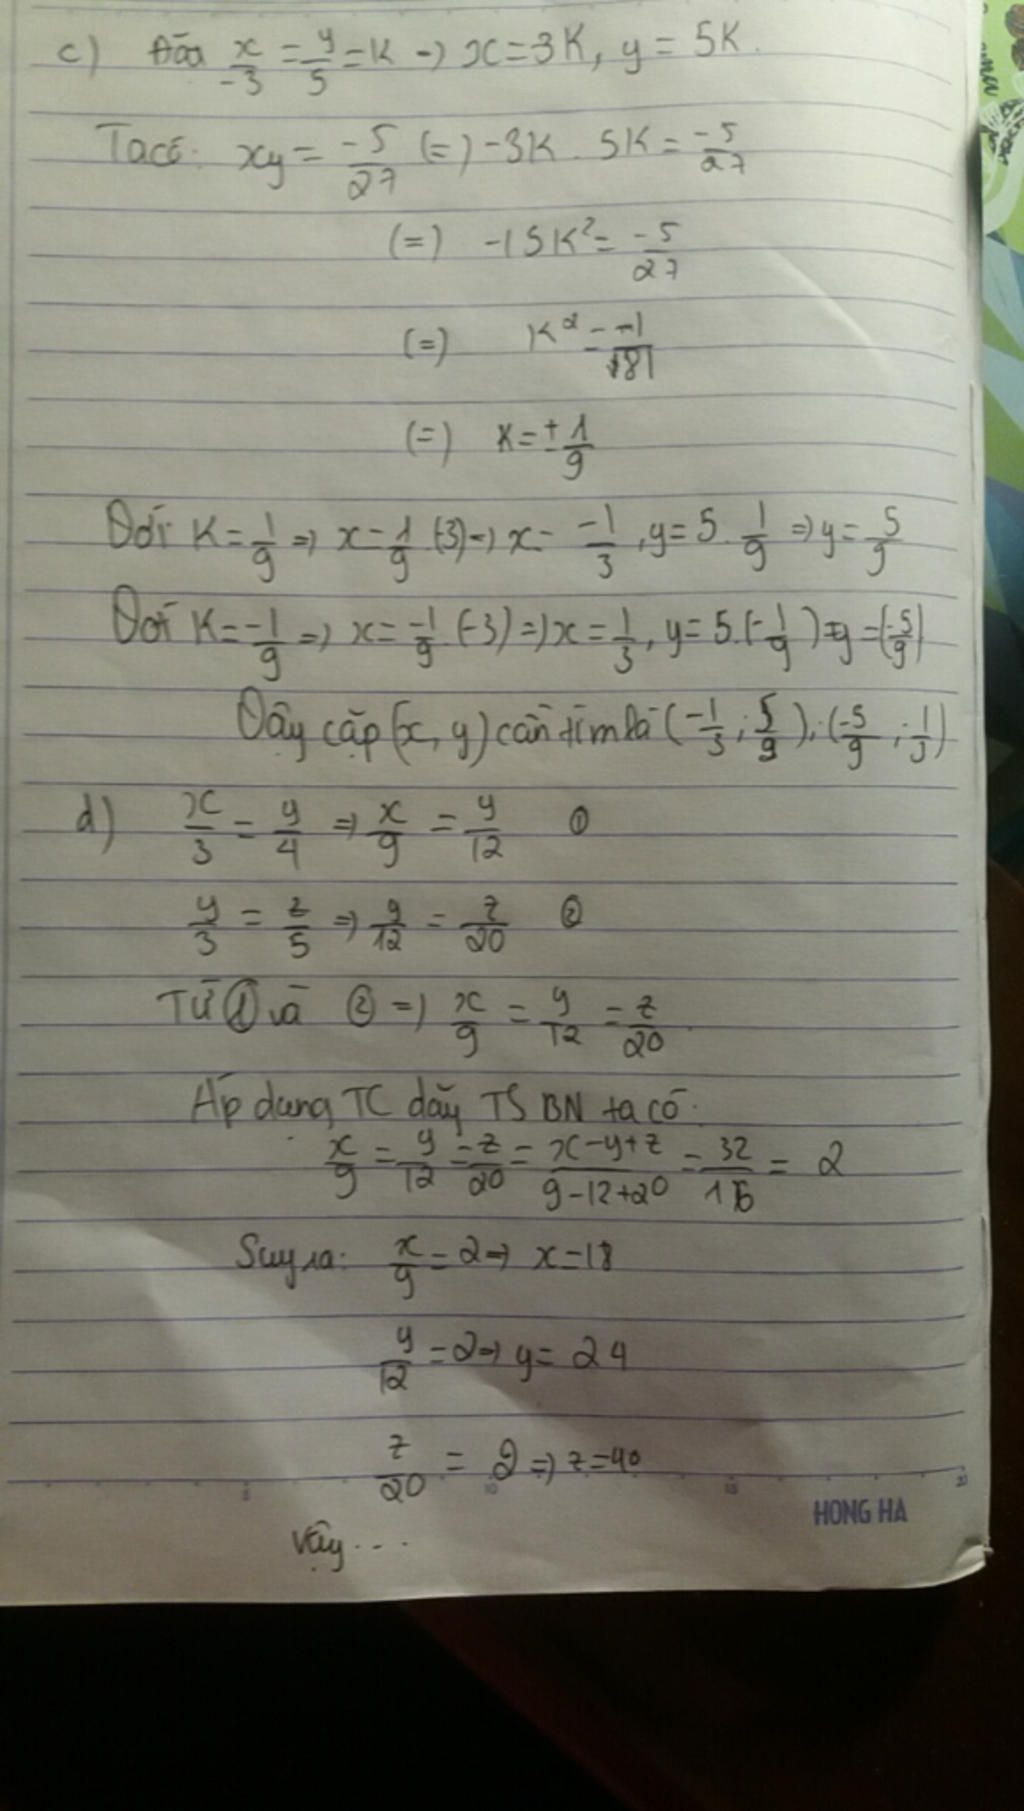 c) Đặt x/-3 = y/5 = K → x = 3K, y = 5K.
Ta có: xy = -5/27 (=) -3K . 5K = -5/27
(=) -15K² = -5/27
(=) K² = 1/81
(=) K = ± 1/9
Với K = 1/9 => x = 1/9 . (3) => x = -1/3, y = 5 . 1/9 => y = 5/9
Với K = -1/9 => x = -1/9 . (-3) => x = 1/3, y = 5.(-1/9) => y = (-5/9)
Vậy cặp (x, y) cần tìm là (-1/3 ; 5/9), (-5/9 ; 1/3)
d) x/3 = y/4 => x/9 = y/12 ①
y/3 = z/5 => y/12 = z/20 ②
Từ ① và ② => x/9 = y/12 = z/20
Áp dụng TC dãy TS BN ta có:
x/9 = y/12 = z/20 = x-y+z/9-12+20 = 32/16 = 2
Suy ra: x/9 = 2 => x = 18
y/12 = 2 => y = 24
z/20 = 2 => z = 40
5 10 15 20
HONG HA
Vậy...